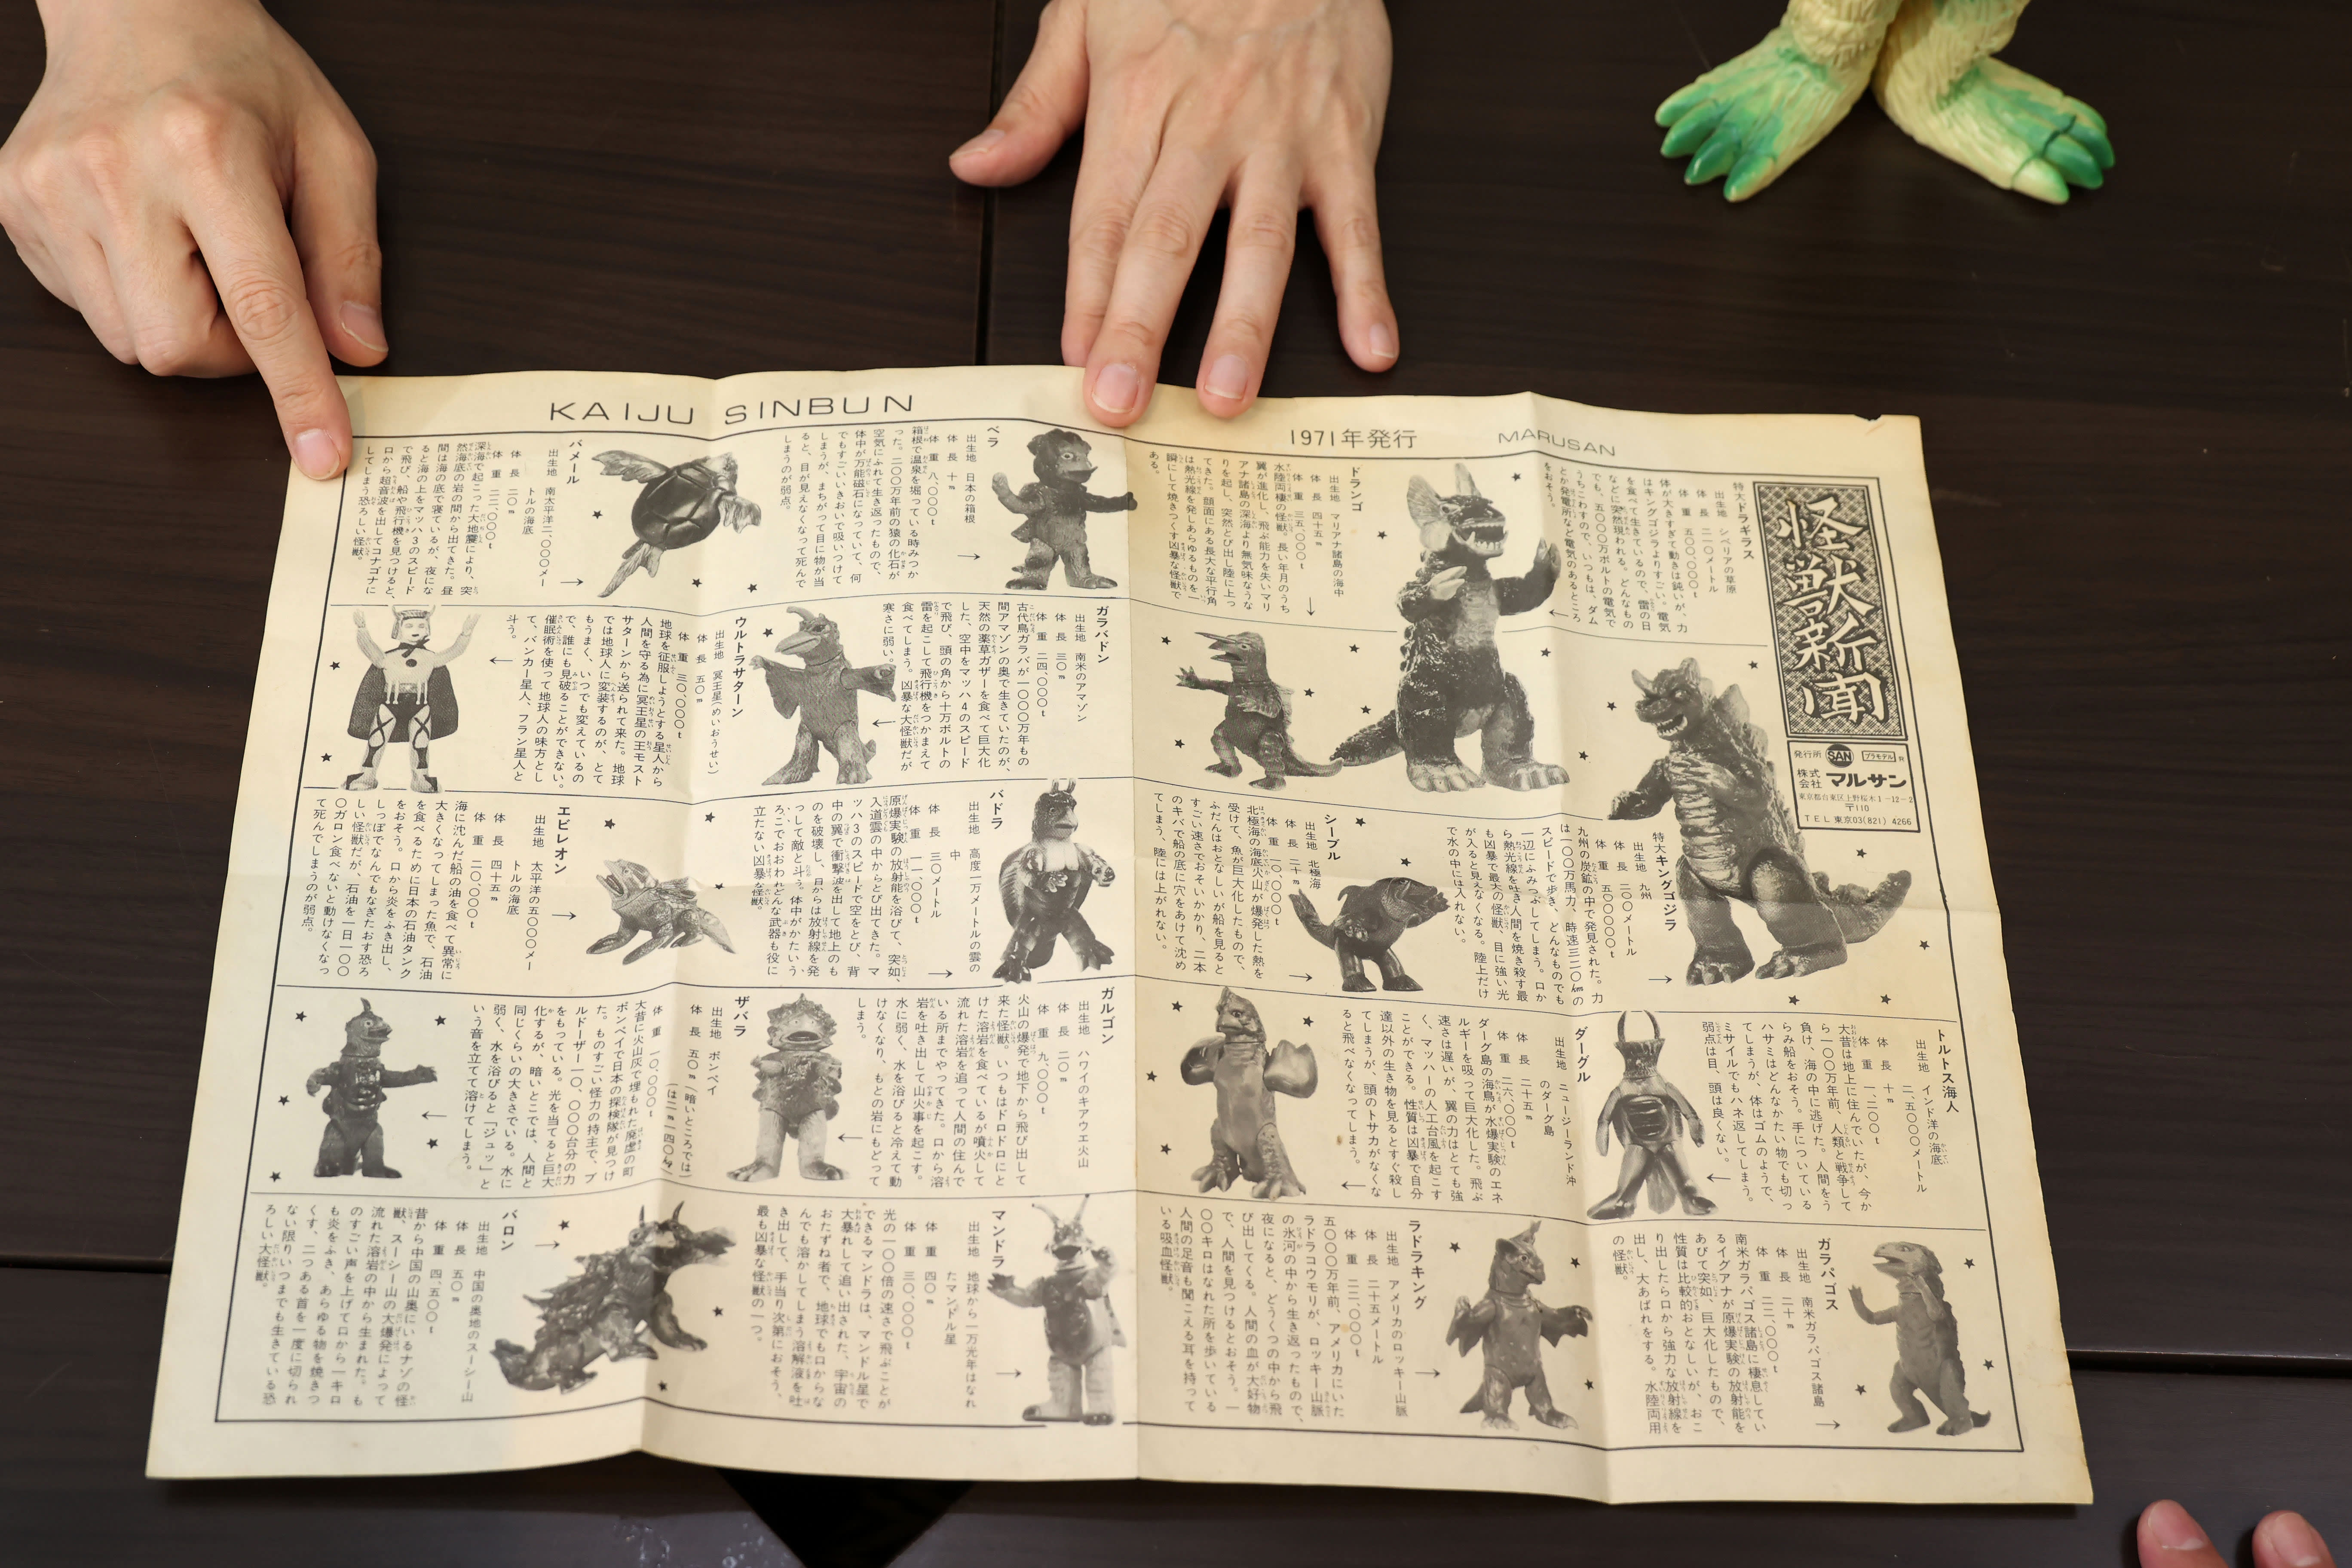 KAIJU SINBUN
1971年発行
MARUSAN
怪獣新聞
発行所 SAN プラモデル
株式会社 マルサン
東京都台東区上野桜木1-12-2
〒110
TEL 東京03(821) 4266
特大ドラギラス
出生地 シベリアの草原
体長 二一〇メートル
体重 五〇、〇〇〇t
体が大きすぎて動きは鈍いが、力
はキングゴジラよりすごい。電気
を食べて生きているので、雷の日
などに突然現われる。どんなもの
でも、五〇〇〇万ボルトの電気で
うちこわすので、いつもは、ダム
とか発電所など電気のあるところ
をおそう。
ドランゴ
出生地 マリアナ諸島の海中
体長 四十五m
体重 三五、〇〇〇t
水陸両棲の怪獣。長い年月のうち
翼が進化し、飛ぶ能力を失いマリ
アナ諸島の深海より無気味なうな
りを起し、突然とび出し陸に上っ
てきた。顔面にある長大な平行角
は熱光線を発しあらゆるものを一
瞬にして焼きつくす凶暴な怪獣で
ある。
ベラ
出生地 日本の箱根
体長 十m
体重 八、〇〇〇t
箱根で温泉を堀っている時みつか
った。二〇〇万年前の猿の化石が
空気にふれて生き返ったもので、
体中が万能磁石になっていて、何
でもすごいいきおいで吸いつけて
しまうが、まちがって目に物が当
ると、目が見えなくなって死んで
しまうのが弱点。
バメール
出生地 南太平洋二、〇〇〇メー
トルの海底
体長 二〇m
体重 二二、〇〇〇t
深海で起こった大地震により、突
然海底の岩の間から出てきた。昼
間は海の底で寝ているが、夜にな
ると海の上をマッハ3のスピード
で飛び、船や飛行機を見つけると、
口から超音波を出してコナゴナに
してしまう恐ろしい怪獣。
ガラバドン
出生地 南米のアマゾン
体長 三〇m
体重 二四、〇〇〇t
古代鳥ガラバが一〇〇〇万年もの
間アマゾンの奥で生きていたのが、
天然の薬草ガザーを食べて巨大化
した。空中をマッハ4のスピード
で飛び、頭の角から十万ボルトの
雷を起こして飛行機をつかまえて
食べてしまう。凶暴な大怪獣だが
寒さに弱い。
ウルトラサターン
出生地 冥王星(めいおうせい)
体長 五〇m
体重 三〇、〇〇〇t
地球を征服しようとする星人から
人間を守る為に冥王星の王モスト
サターンから送られて来た。地球
では地球人に変装するのが、とて
もうまく、いつでも変えているの
で、誰にも見破ることができない。
催眠術を使って地球人の味方とし
て、バンカー星人、フラン星人と
斗う。
特大キングゴジラ
出生地 九州
体長 二〇〇メートル
体重 五〇〇〇〇t
九州の炭鉱の中で発見された。力
は一〇〇万馬力、時速三二〇㎞の
スピードで歩き、どんなものでも
一辺にふみつぶしてしまう。口か
ら熱光線を吐き人間を焼き殺す最
も凶暴で最大の怪獣、目に強い光
が入ると見えなくなる。陸上だけ
で水の中には入れない。
シーブル
出生地 北極海
体長 二十m
体重 一〇、〇〇〇t
北極海の海底火山が爆発した熱を
受けて、魚が巨大化したもので、
ふだんはおとなしいが船を見ると
すごい速さでおそいかかり、二本
のキバで船の底に穴をあけて沈め
てしまう、陸には上がれない。
バドラ
出生地 高度一万メートルの雲の
中
体長 三〇メートル
体重 一一、〇〇〇t
原爆実験の放射能を浴びて、突如、
入道雲の中からとび出てきた。マ
ッハ3のスピードで空をとび、背
中の翼で衝撃波を出して地上のも
のを破壊し、目からは放射線を発
っして敵と斗う。体中がかたいう
ろこでおおわれどんな武器も役に
立たない凶暴な怪獣。
エビレオン
出生地 太平洋の五〇〇〇メー
トルの海底
体長 四十五m
体重 二〇、〇〇〇t
海に沈んだ船の油を食べて異常に
大きくなってしまった魚で、石油
を食べるために日本の石油タンク
をおそう。口から炎をふき出し、
しっぽでなんでもなぎたおす恐ろ
しい怪獣だが、石油を一日一〇〇
〇ガロン食べないと動けなくなっ
て死んでしまうのが弱点。
トルトス海人
出生地 インド洋の海底
二、五〇〇〇メートル
体長 十m
体重 一、二〇〇t
大昔は地上に住んでいたが、今か
ら一〇〇万年前、人類と戦争して
負け、海の中に逃げた。人間をう
らみ船をおそう。手についている
ハサミはどんなかたい物でも切っ
てしまうが、体はゴムのようで、
ミサイルでもハネ返してしまう。
弱点は目、頭は良くない。
ダーグル
出生地 ニュージーランド沖
のダーグ島
体長 二十五m
体重 二六、〇〇〇t
ダーグ島の海鳥が水爆実験のエネ
ルギーを吸って巨大化した。飛ぶ
速さは遅いが、翼の力はとても強
く、マッハーの人工台風を起こす
ことができる。性質は凶暴で自分
達以外の生き物を見るとすぐ殺し
てしまうが、頭のトサカがなくな
ると飛べなくなってしまう。
ガルゴン
出生地 ハワイのキアウエ火山
体長 二〇m
体重 九、〇〇〇t
火山の爆発で地下から飛び出して
来た怪獣。いつもはドロドロにと
けた溶岩を食べているが噴火して
流れた溶岩を追って人間の住んで
いる所までやってきた。口から溶
岩を吐き出して山火事を起こす。
水に弱く、水を浴びると冷えて動
けなくなり、もとの岩にもどって
しまう。
ザバラ
出生地 ボンベイ
体長 五〇m(暗いところでは)
(は二m一四〇㎝)
体重 一〇、〇〇〇t
大昔に火山灰で埋もれた廃虚の町
ボンベイで日本の探検隊が見つけ
た。ものすごい怪力の持主で、ブ
ルドーザー一〇、〇〇〇台分の力
をもっている。光を当てると巨大
化するが、暗いとこでは、人間と
同じくらいの大きさでいる。水に
弱く、水を浴びると「ジュッ」と
いう音を立てて溶けてしまう。
ガラパゴス
出生地 南米ガラパゴス諸島
体長 二十m
体重 二二、〇〇〇t
南米ガラパゴス諸島に棲息してい
るイグアナが原爆実験の放射能を
あびて突如、巨大化したもので、
性質は比較的おとなしいが、おこ
り出したら口から強力な放射線を
出し、大あばれをする。水陸両用
の怪獣。
ラドラキング
出生地 アメリカのロッキー山脈
体長 二十五メートル
体重 二二、〇〇〇t
五〇〇〇万年前、アメリカにいた
ラドラコウモリが、ロッキー山脈
の氷河の中から生き返ったもので、
夜になると、どうくつの中から飛
び出してくる。人間の血が大好物
で、人間を見つけるとおそう。一
〇〇キロはなれた所を歩いている
人間の足音も聞こえる耳を持って
いる吸血怪獣。
マンドラ
出生地 地球から一万光年はなれ
たマンドル星
体長 四〇m
体重 三〇、〇〇〇t
光の一〇〇倍の速さで飛ぶことが
できるマンドラは、マンドル星で
大暴れして追い出された、宇宙の
おたずね者で、地球でも口からな
んでも溶かしてしまう溶解液を吐
き出して、手当り次第におそう、
最も凶暴な怪獣の一つ。
バロン
出生地 中国の奥地のスーシー山
体長 五〇m
体重 四、五〇〇t
昔から中国の山奥にいるナゾの怪
獣、スーシー山の大爆発によって
流れた溶岩の中から生まれた。も
のすごい声を上げて口から一キロ
も炎をふき、あらゆる物を焼きつ
くす、二つある首を一度に切られ
ない限りいつまでも生きている恐
ろしい大怪獣。